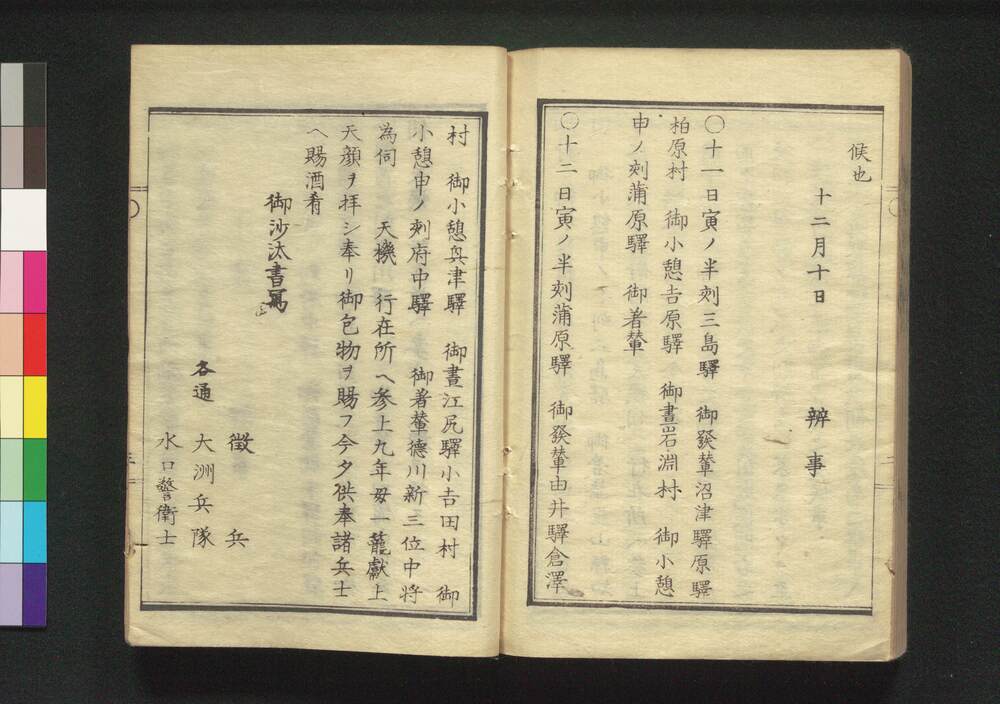 候也
十二月十日
辨事
〇十一日寅ノ半刻三島驛　御發輦沼津驛原驛
柏原村　御小憩吉原驛　御晝岩淵村　御小憩
申ノ刻蒲原驛　御着輦
〇十二日寅ノ半刻蒲原驛　御發輦由井驛倉澤
村　御小憩奥津驛　御晝江尻驛小吉田村　御
小憩申ノ刻府中驛　御着輦德川新三位中將
為伺　天機　行在所ヘ参上九年母一籠獻上
天顔ヲ拝シ奉リ御包物ヲ賜フ今夕供奉諸兵士
ヘ賜酒肴
御沙汰書寫
徵兵
各通　大洲兵隊
水口警衛士